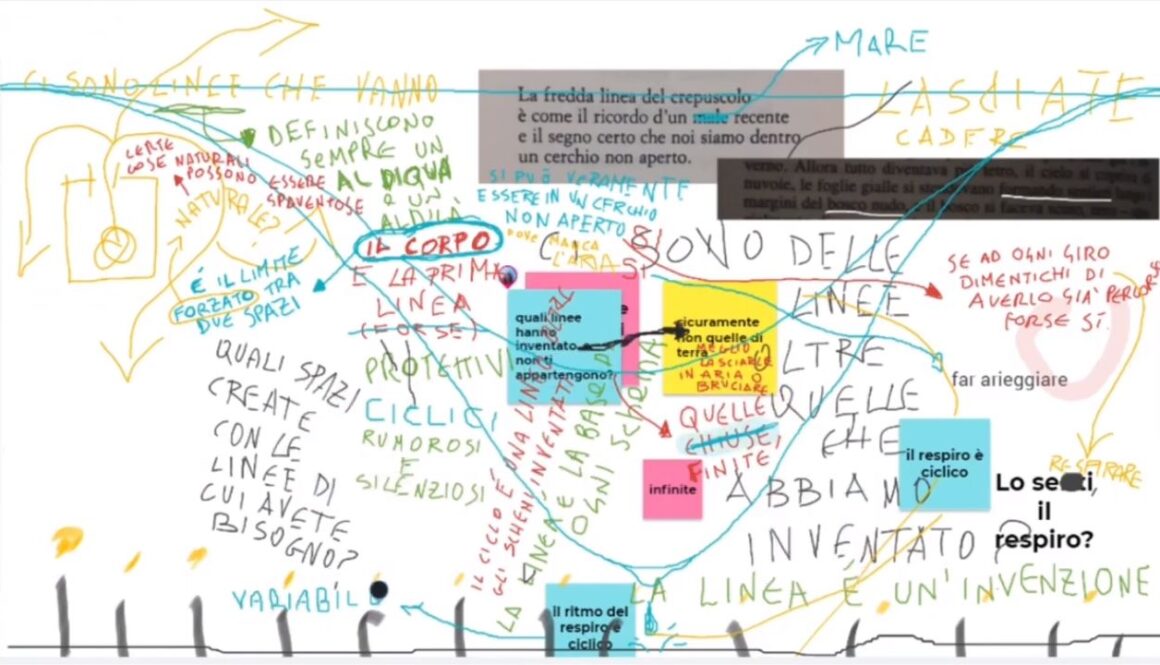 MARE
CI SONO LINEE CHE VANNO
LASCIATE
CADERE
La fredda linea del crepuscolo
è come il ricordo d'un male recente
e il segno certo che noi siamo dentro
un cerchio non aperto.
verno. Allora tutto diventava più tetro, il cielo si copriva di
nuvole, le foglie gialle si
formando sentieri lungo i
margini del bosco nudo, e il bosco si faceva
DEFINISCONO
SEMPRE UN
AL DIQUA
E UN
ALDILÀ
CERTE
COSE NATURALI
POSSONO ESSERE
SPAVENTOSE
NATURALE?
È IL LIMITE
FORZATO TRA
DUE SPAZI
SI PUÒ VERAMENTE
ESSERE IN UN CERCHIO
NON APERTO
DOVE MANCA
L'ARIA
SI
IL CORPO
È LA PRIMA
LINEA
(FORSE)
CI SONO DELLE
LINEE
OLTRE
QUELLE
CHE
ABBIAMO
INVENTATO?
SE AD OGNI GIRO
DIMENTICHI DI
AVERLO GIÀ PERCORSO
FORSE SÌ.
quali linee
hanno
inventato
non ti
appartengono?
sicuramente
non quelle di
terra
MEGLIO
LASCIARLE
IN ARIA O
BRUCIARE
far arieggiare
QUALI SPAZI
CREATE
CON LE
LINEE DI
CUI AVETE
BISOGNO?
PROTETTIVI
CICLICI
RUMOROSI
E
SILENZIOSI
IL CICLO È UNA LINEA OLTRE
GLI SCHEMI INVENTATI
LA LINEA È LA BASE DI
OGNI SCHEMA
QUELLE
CHIUSE,
FINITE
infinite
il respiro è
ciclico
RESPIRARE
Lo senti,
il
respiro?
VARIABILE
il ritmo del
respiro è
ciclico
LA LINEA È UN'INVENZIONE